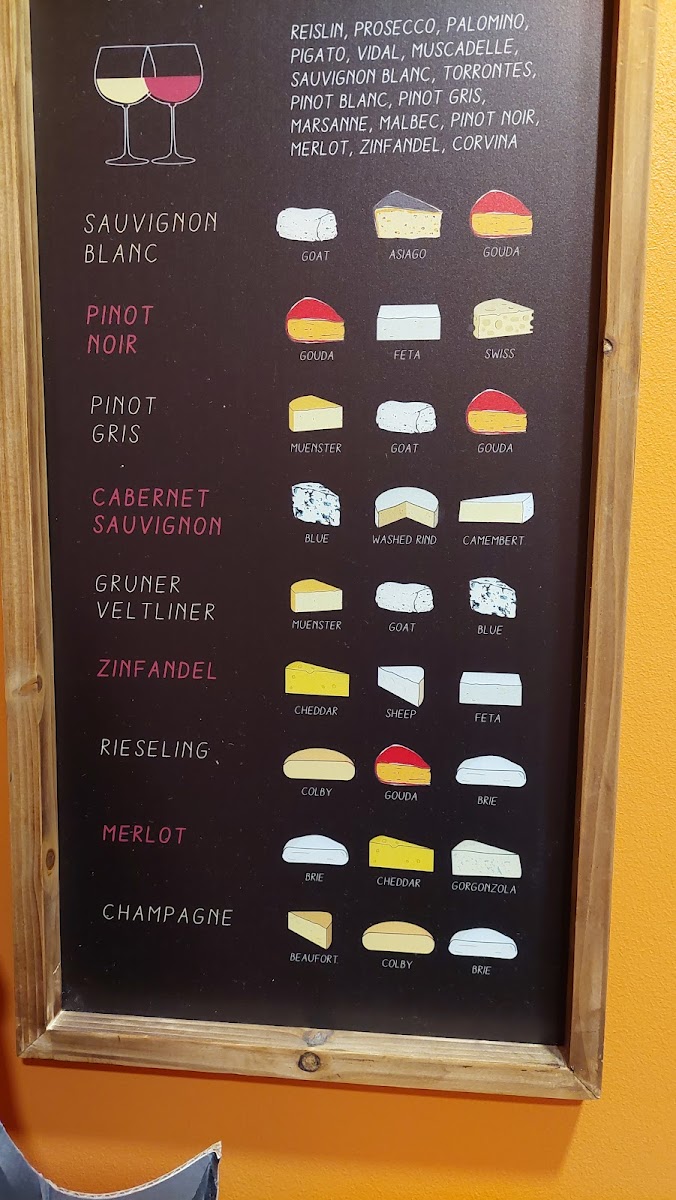 REISLIN, PROSECCO, PALOMINO,
PIGATO, VIDAL, MUSCADELLE,
SAUVIGNON BLANC, TORRONTES,
PINOT BLANC, PINOT GRIS,
MARSANNE, MALBEC, PINOT NOIR,
MERLOT, ZINFANDEL, CORVINA
SAUVIGNON
BLANC
GOAT ASIAGO GOUDA
PINOT
NOIR
GOUDA FETA SWISS
PINOT
GRIS
MUENSTER GOAT GOUDA
CABERNET
SAUVIGNON
BLUE WASHED RIND CAMEMBERT
GRUNER
VELTLINER
MUENSTER GOAT BLUE
ZINFANDEL
CHEDDAR SHEEP FETA
RIESELING
COLBY GOUDA BRIE
MERLOT
BRIE CHEDDAR GORGONZOLA
CHAMPAGNE
BEAUFORT COLBY BRIE